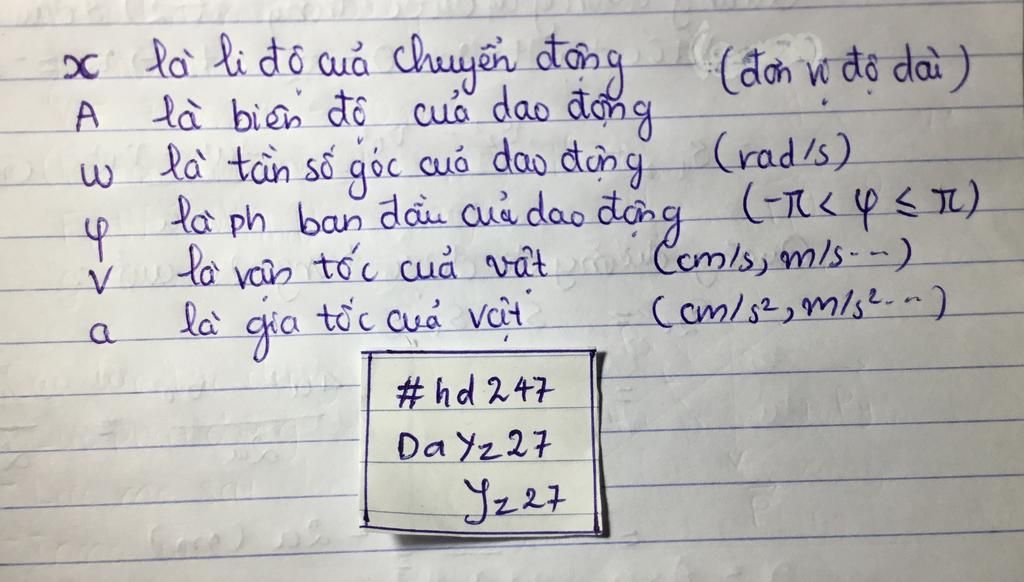 x là li độ của chuyển động (đơn vị độ dài)
A là biên độ của dao động
w là tần số góc của dao động (rad/s)
φ là ph ban đầu của dao động (-π < φ ≤ π)
v là vận tốc của vật (cm/s, m/s...)
a là gia tốc của vật (cm/s², m/s²...)
#hd247
Da Yz27
Yz27